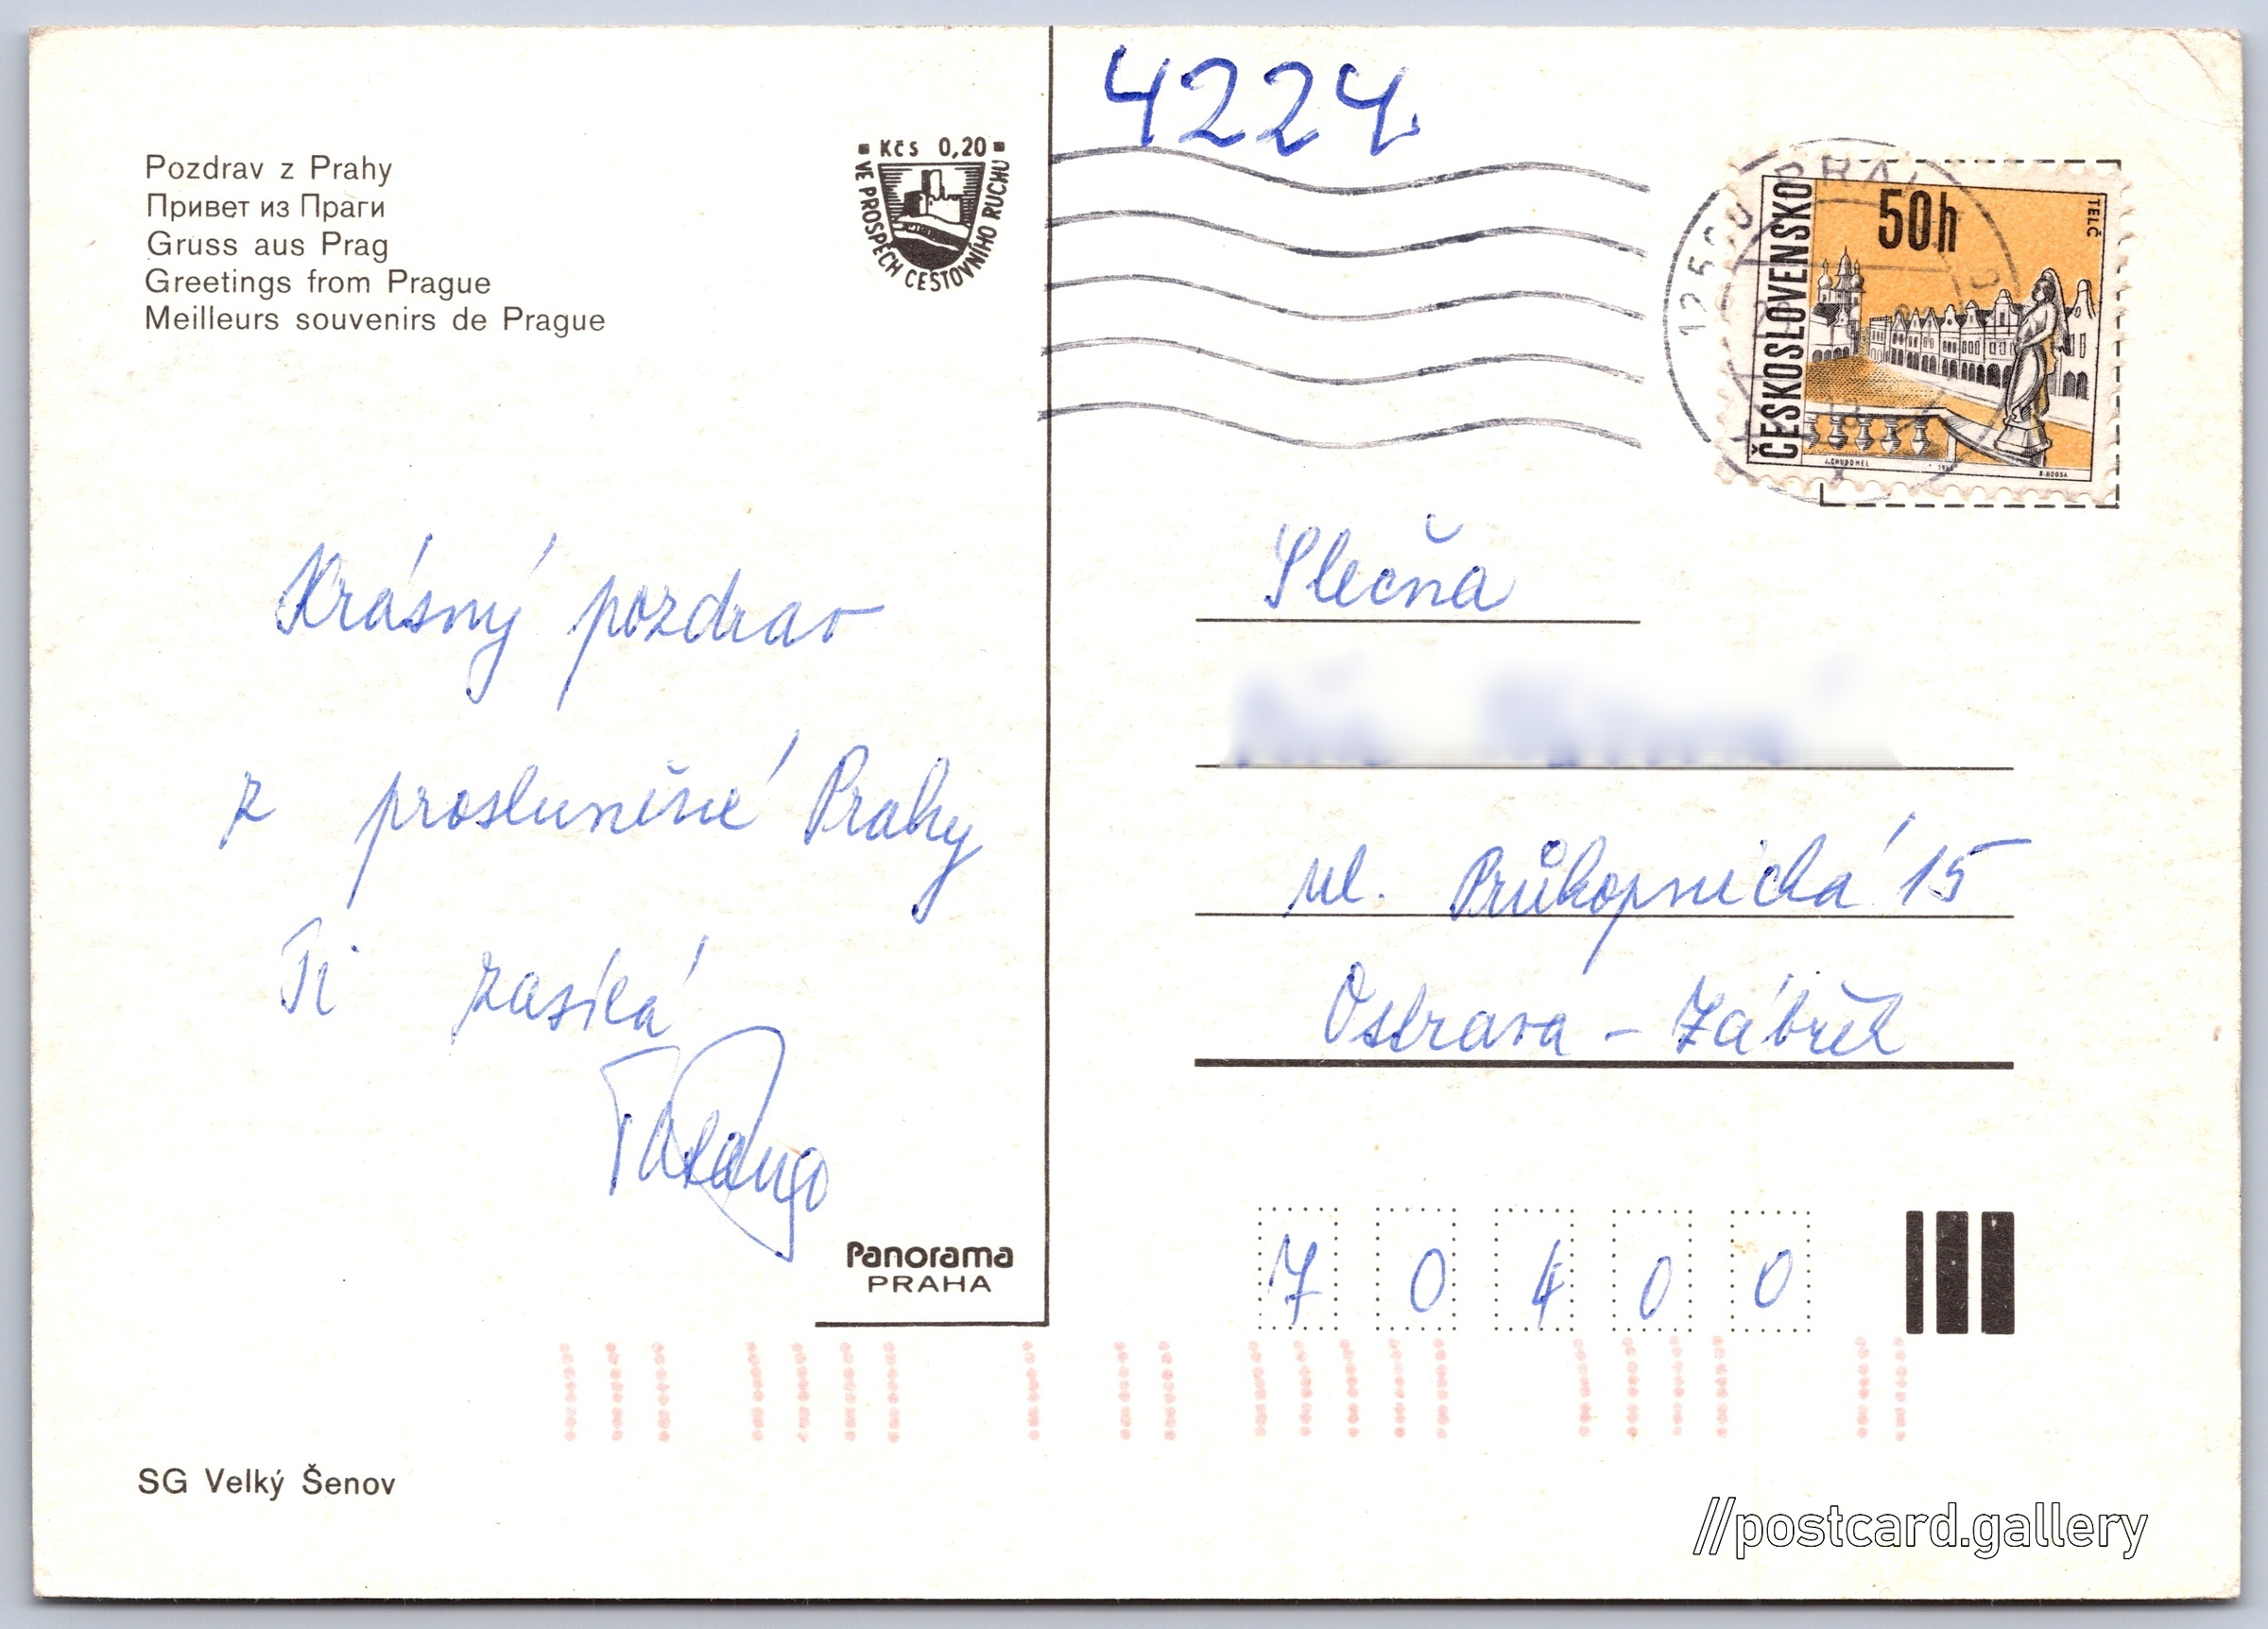 Pozdrav z Prahy
Привет из Праги
Gruss aus Prag
Greetings from Prague
Meilleurs souvenirs de Prague
Kčs 0,20
VE PROSPĚCH CESTOVNÍHO RUCHU
4224
ČESKOSLOVENSKO
50h
TELČ
J.CHUDOMEL
Krásný pozdrav
z prosluněné Prahy
Ti zasílá
Slečna
ul. Průkopnická 15
Ostrava - Zábřeh
70400
Panorama
PRAHA
SG Velký Šenov
//postcard.gallery